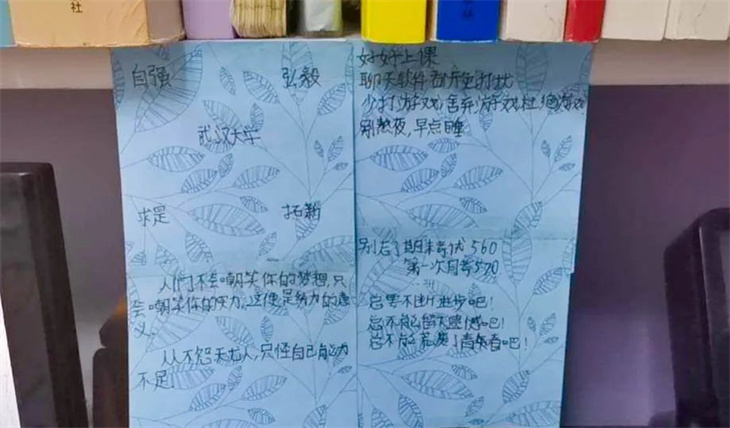 社
自强 弘毅
武汉大学
求是 拓新
人们不会嘲笑你的梦想,只
会嘲笑你的实力,这便是努力的意
义
从不怨天尤人,只怪自己能力
不足
好好上课
聊天软件都开免打扰
少打游戏,舍弃游戏杜绝游戏
别熬夜,早点睡
别忘了期末考试560
第一次月考570
总要不断进步吧!
总不能留下遗憾吧!
总不能荒废了青春吧!